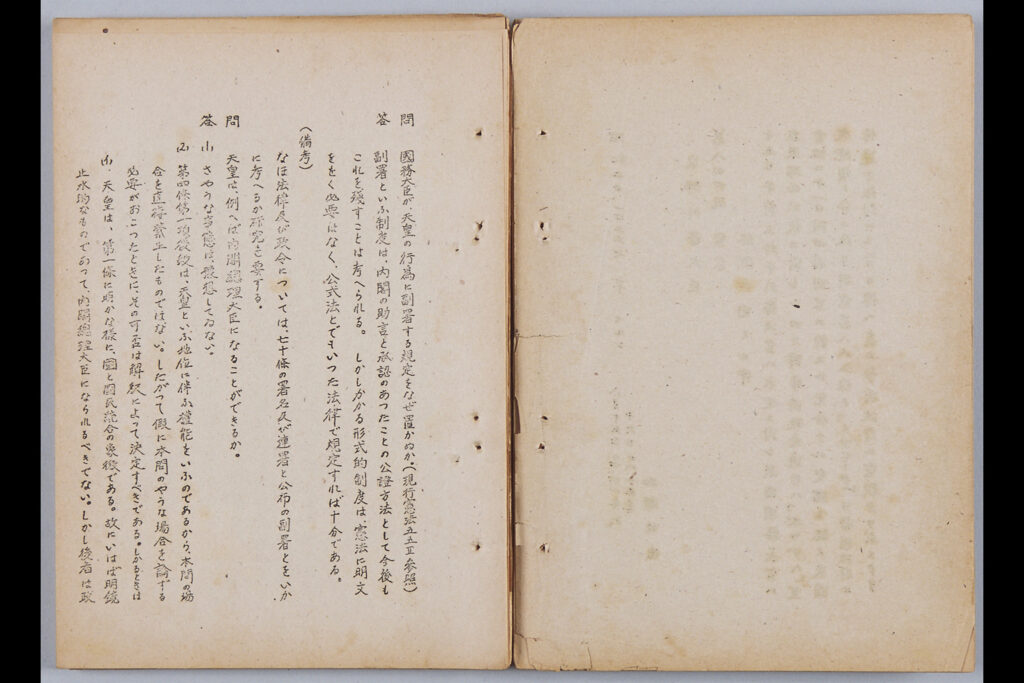 問 國務大臣が、天皇の行為に副署する規定をなぜ置かぬか。(現行憲法五五Ⅱ参照)
答 副署といふ制度は、内閣の助言と承認のあつたことの公證方法として今後も
これを残すことは考へられる。 しかしかかる形式的制度は、憲法に明文
ををく必要はなく、公式法とでもいつた法律で規定すれば十分である。
(備考)
なほ法律及び政令については、七十條の署名及び連署と公布の副署とをいか
に考へるか研究を要する。
問 天皇は、例へば内閣總理大臣になることができるか。
答 (1) さやうな事態は、豫想してゐない。
(2) 第四條第一項後段は、天皇といふ地位に伴ふ権能をいふのであるから、本問の場
合を直接禁止したものではない。したがつて假に本問のやうな場合を論ずる
必要がおこつたときに、その可否は解釈によつて決定すべきである。しかるときは
(3) 天皇は、第一條に明かな様に、國と國民統合の象徴である。故にいはば明鏡
止水的なものであつて、内閣總理大臣になられるべきでない。しかし後者は政